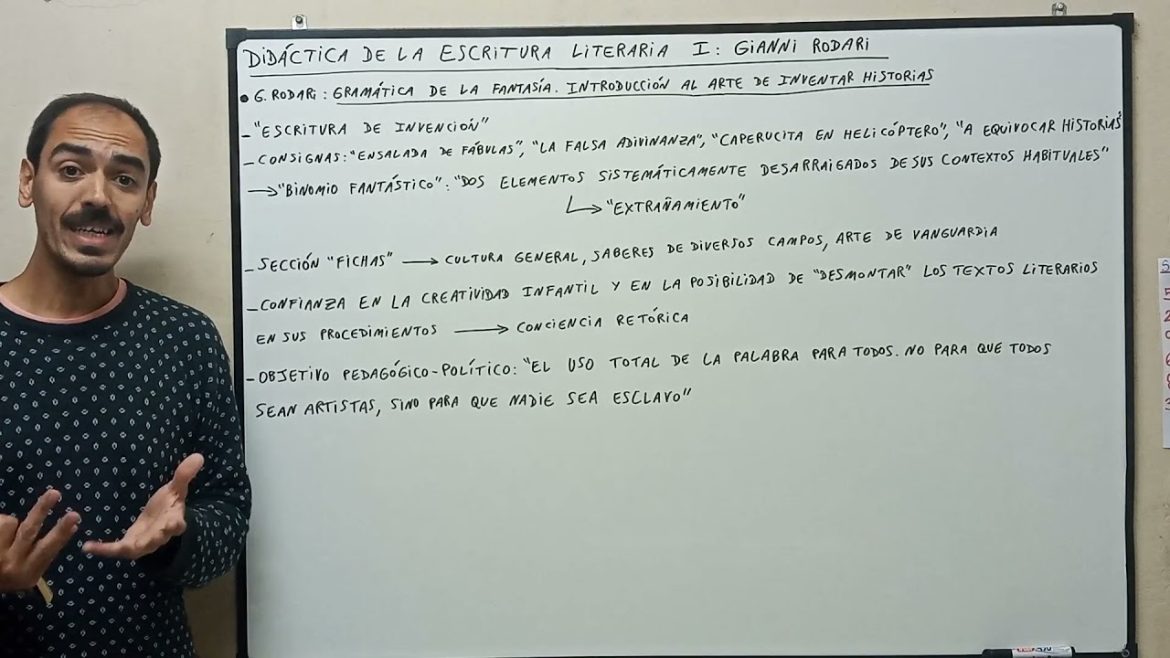 DIDÁCTICA DE LA ESCRITURA LITERARIA I: GIANNI RODARI
• G. RODARI: GRAMÁTICA DE LA FANTASÍA. INTRODUCCIÓN AL ARTE DE INVENTAR HISTORIAS
- "ESCRITURA DE INVENCIÓN"
- CONSIGNAS: "ENSALADA DE FÁBULAS", "LA FALSA ADIVINANZA", "CAPERUCITA EN HELICÓPTERO", "A EQUIVOCAR HISTORIAS"
→ "BINOMIO FANTÁSTICO": "DOS ELEMENTOS SISTEMÁTICAMENTE DESARRAIGADOS DE SUS CONTEXTOS HABITUALES"
↳ "EXTRAÑAMIENTO"
- SECCIÓN "FICHAS" → CULTURA GENERAL, SABERES DE DIVERSOS CAMPOS, ARTE DE VANGUARDIA
- CONFIANZA EN LA CREATIVIDAD INFANTIL Y EN LA POSIBILIDAD DE "DESMONTAR" LOS TEXTOS LITERARIOS
EN SUS PROCEDIMIENTOS → CONCIENCIA RETÓRICA
- OBJETIVO PEDAGÓGICO-POLÍTICO: "EL USO TOTAL DE LA PALABRA PARA TODOS. NO PARA QUE TODOS
SEAN ARTISTAS, SINO PARA QUE NADIE SEA ESCLAVO"